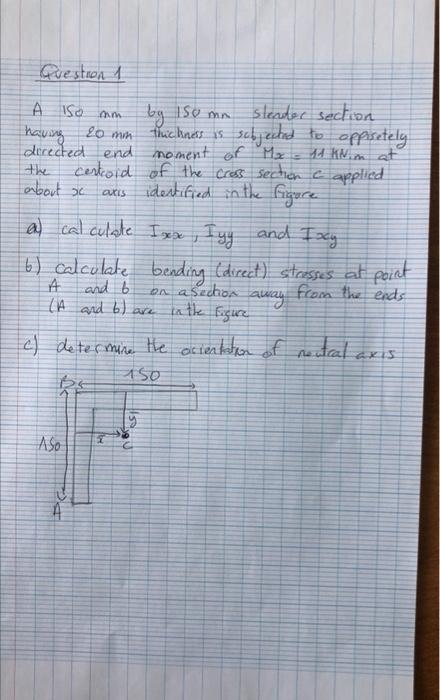 Question 1
A 150 mm by 150 mm slender section
having 20 mm thichness is subjected to oppisetely
directed end moment of Mx = 11 KN.m at
the centroid of the cross section C applied
about x axis identified in the figure
a) calculate Ixx, Iyy and Ixy
b) calculate bending (direct) stresses at point
A and b on a section away from the ends
(A and b) are in the Figure
c) determine the orientation of neutral axis
150
B
ȳ
x̄
150
C
A